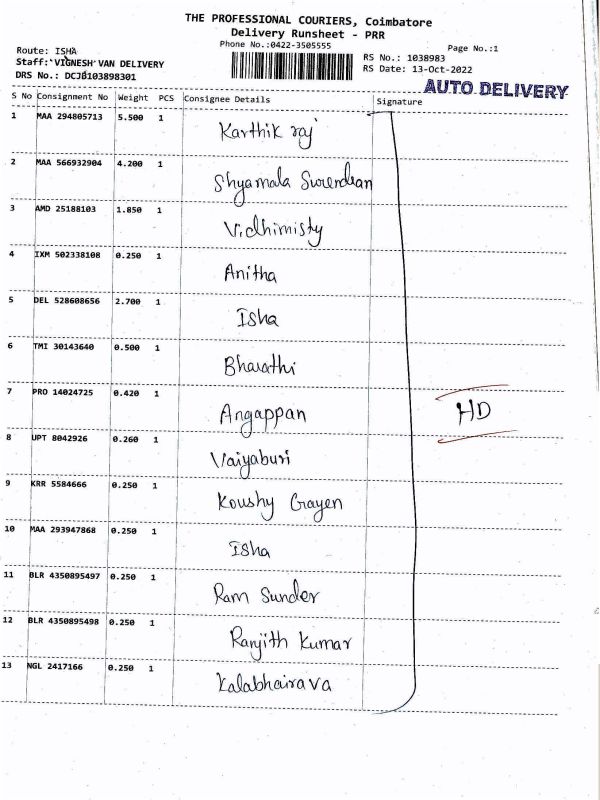 THE PROFESSIONAL COURIERS, Coimbatore
Delivery Runsheet - PRR
Phone No.:0422-3505555
Page No.:1
Route: ISHA
Staff: VIGNESH VAN DELIVERY
DRS No.: DCJB103898301
RS No.: 1038983
RS Date: 13-Oct-2022
AUTO DELIVERY
S No Consignment No Weight PCS Consignee Details Signature
1 MAA 294805713 5.500 1 Karthik raj
2 MAA 566932904 4.200 1 Shyamala Surendran
3 AMD 25188103 1.850 1 Vidhimisty
4 IXM 502338108 0.250 1 Anitha
5 DEL 528608656 2.700 1 Isha
6 TMI 30143640 0.500 1 Bharathi
7 PRO 14024725 0.420 1 Angappan
HD
8 UPT 8042926 0.260 1 Vaiyaburi
9 KRR 5584666 0.250 1 Koushy Grayen
10 MAA 293947868 0.250 1 Isha
11 BLR 4350895497 0.250 1 Ram Sunder
12 BLR 4350895498 0.250 1 Ranjith Kumar
13 NGL 2417166 0.250 1 Kalabhairava